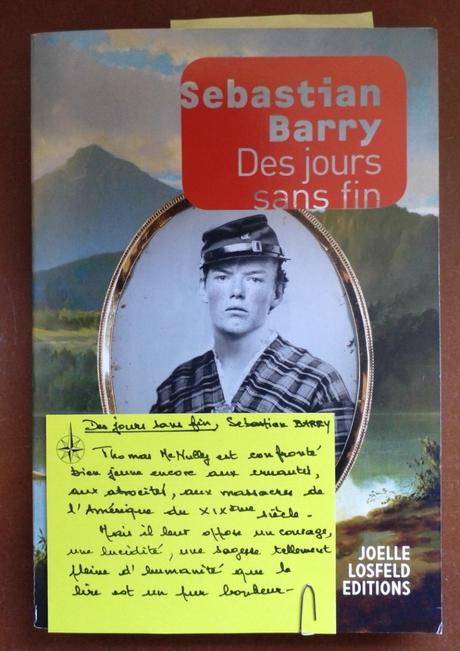 Sebastian
Barry
Des jours
sans fin
Des jours sans fin, Sebastian BARRY
Thomas McNulty est confronté
bien jeune encore aux cruautés,
aux atrocités, aux massacres de
l'Amérique du XIXème siècle.
Mais il leur oppose un courage,
une lucidité, une sagesse tellement
pleine d'humanité que le
lire est un pur bonheur.
JOELLE
LOSFELD
EDITIONS